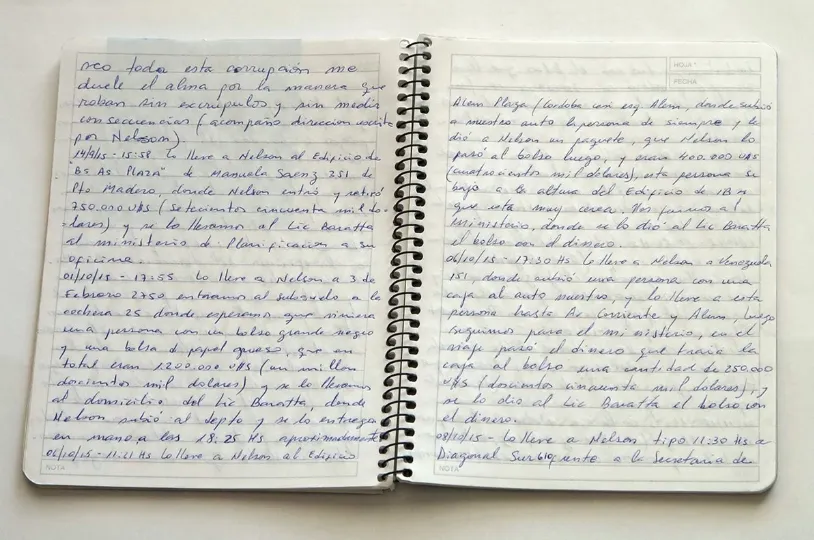 veo toda esta corrupción me
duele el alma por la manera que
roban sin escrupulos y sin medir
consecuencias (acompaño direccion escrita
por Nelson).
14/9/15 - 15:58 Lo lleve a Nelson al Edificio de
"BS AS PLAZA" de Manuela Saenz 351 de
Pto Madero, donde Nelson entró y retiró
750.000 U$S (setecientos cincuenta mil do-
lares) y se lo llevamos al Lic Baratta
al ministerio de Planificacion a su
oficina.
01/10/15 - 17:55 Lo lleve a Nelson a 3 de
Febrero 2750 entramos al subsuelo a la
cochera 25 donde esperamos que viniera
una persona con un bolso grande negro
y una bolsa d papel grueso, que en
total eran 1200.000 U$S (un millon
doscientos mil dolares) y se lo llevamos
al domicilio del Lic Baratta, donde
Nelson subió al depto y se lo entrego
en mano, a las 18:25 Hs aproximadamente
06/10/15 - 11:21 Hs Lo lleve a Nelson al Edificio
NOTA
HOJA Nº
FECHA
Alem Plaza (Cordoba casi esq Alem, donde subió
a nuestro auto la persona de siempre y le
dió a Nelson un paquete, que Nelson lo
pasó al bolso luego, y eran 400.000 U$S
(cuatrocientos mil dolares), esta persona se
bajo a la altura del Edificio de IBM
que está muy cerca. Nos fuimos al
ministerio, donde se lo dió al Lic Baratta
el bolso con el dinero.
06/10/15 - 17:30 Hs lo lleve a Nelson a Venezuela
151, donde subió una persona con una
caja al auto nuestro, y lo lleve a esta
persona hasta Av Corriente y Alem, luego
seguimos para el ministerio, en el
viaje pasó el dinero que traia la
caja al bolso una cantidad de 250.000
U$S (doscientos cincuenta mil dolares), y
se lo dio al Lic Baratta el bolso con
el dinero.
08/10/15 - Lo lleve a Nelson tipo 11:30 Hs a
Diagonal Sur 610, frente a la Secretaria de
NOTA